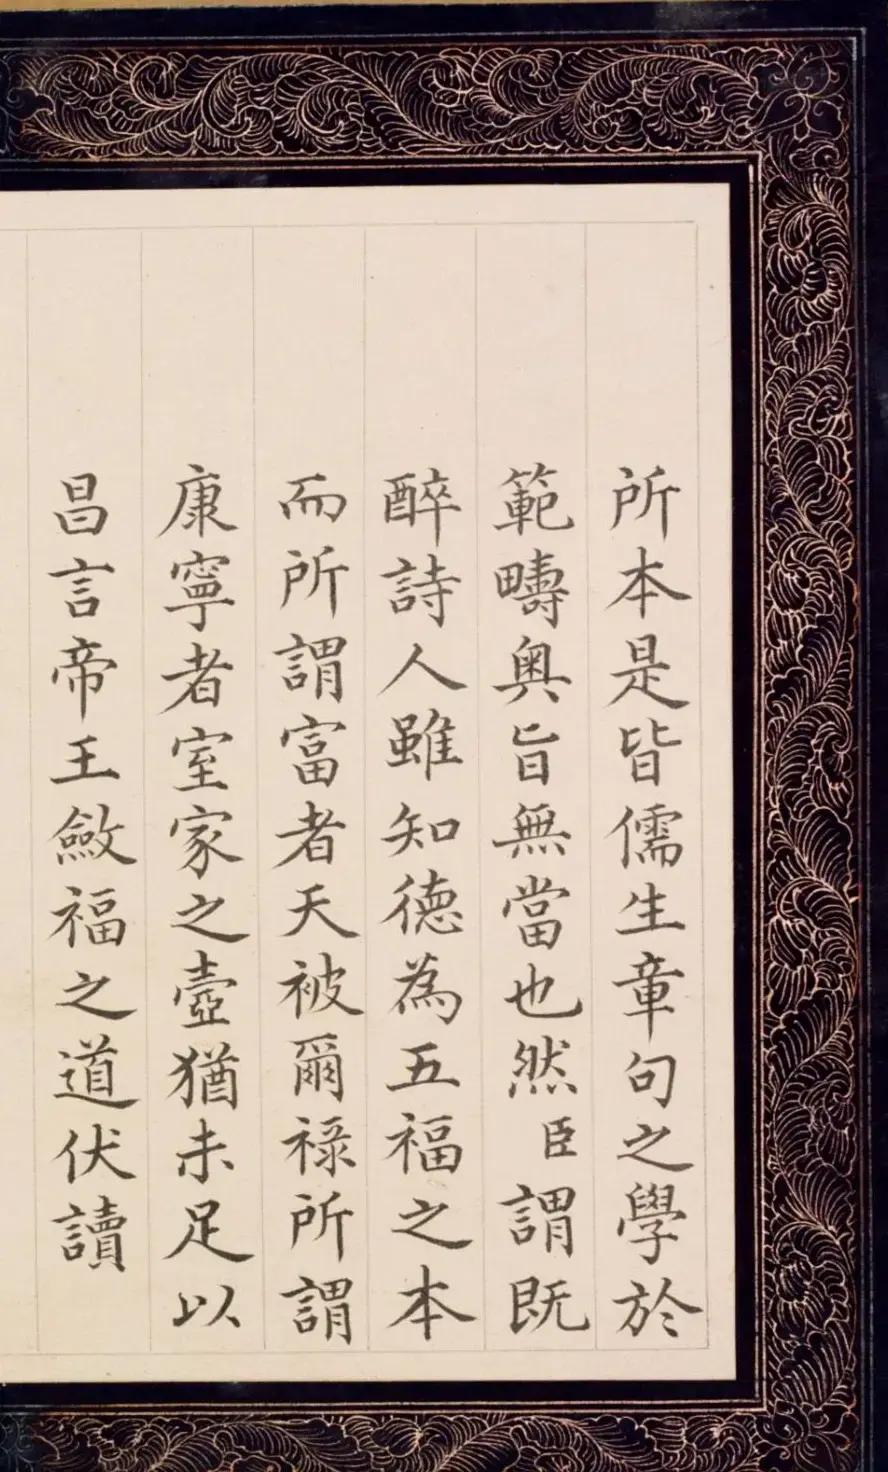 所本是皆儒生章句之學於
範疇奧旨無當也然臣謂既
醉詩人雖知德為五福之本
而所謂富者天被爾祿所謂
康寧者室家之壼猶未足以
昌言帝王斂福之道伏讀